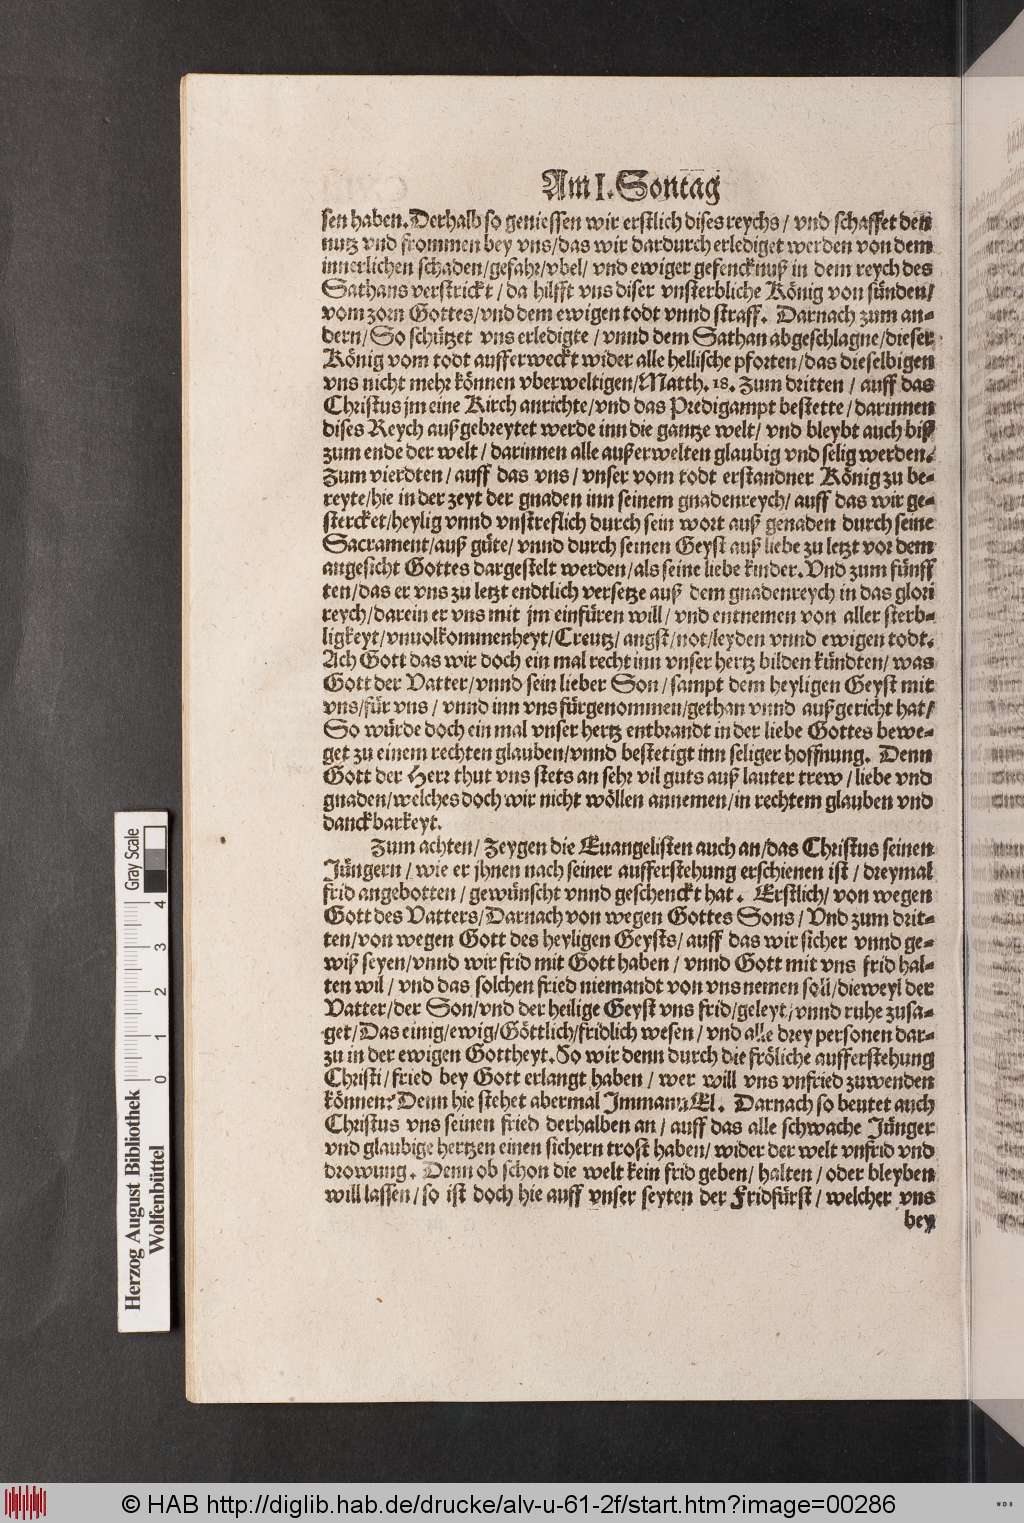 Am I. Sontag
sen haben. Derhalb so geniessen wir erstlich dises reychs / vnd schaffet den
nutz vnd frommen bey vns / das wir dardurch erlediget werden von dem
innerlichen schaden / gefahr / vbel / vnd ewiger gefencknuß in dem reych des
Sathans verstrickt / da hilfft vns diser vnsterbliche König von sünden /
vom zorn Gottes / vnd dem ewigen todt vnnd straff. Darnach zum an-
dern / So schützet vns erledigte / vnnd dem Sathan abgeschlagne / dieser
König vom todt aufferweckt wider alle hellische pforten / das dieselbigen
vns nicht mehr können vberweltigen / Matth. 18. Zum dritten / auff das
Christus jm eine Kirch anrichte / vnd das Predigampt bestette / darinnen
dises Reych außgebreytet werde inn die gantze welt / vnd bleybt auch biß
zum ende der welt / darinnen alle außerwelten glaubig vnd selig werden.
Zum vierdten / auff das vns / vnser vom todt erstandner König zu be-
reyte / hie in der zeyt der gnaden inn seinem gnadenreych / auff das wir ge-
stercket / heylig vnnd vnstreflich durch sein wort auß genaden durch seine
Sacrament / auß güte / vnnd durch seinen Geyst auß liebe zu letzt vor dem
angesicht Gottes dargestelt werden / als seine liebe kinder. Vnd zum fünff
ten / das er vns zu letzt endtlich versetze auß dem gnadenreych in das glori
reych / darein er vns mit jm einfüren will / vnd entnemen von aller sterb-
ligkeyt / vnuolkommenheyt / Creutz / angst / not / leyden vnnd ewigen todt.
Ach Gott das wir doch ein mal recht inn vnser hertz bilden kündten / was
Gott der Vatter / vnnd sein lieber Son / sampt dem heyligen Geyst mit
vns / für vns / vnnd inn vns fürgenommen / gethan vnnd außgericht hat /
So würde doch ein mal vnser hertz entbrandt in der liebe Gottes bewe-
get zu einem rechten glauben / vnnd bestetigt inn seliger hoffnung. Denn
Gott der Herr thut vns stets an sehr vil guts auß lauter trew / liebe vnd
gnaden / welches doch wir nicht wöllen annemen / in rechtem glauben vnd
danckbarkeyt.
Zum achten / Zeygen die Euangelisten auch an / das Christus seinen
Jüngern / wie er jhnen nach seiner aufferstehung erschienen ist / dreymal
frid angebotten / gewünscht vnnd geschenckt hat. Erstlich / von wegen
Gott des Vatters / Darnach von wegen Gottes Sons / Vnd zum drit-
ten / von wegen Gott des heyligen Geysts / auff das wir sicher vnnd ge-
wiß seyen / vnnd wir frid mit Gott haben / vnnd Gott mit vns frid hal-
ten wil / vnd das solchen fried niemandt von vns nemen soll / dieweyl der
Vatter / der Son / vnd der heilige Geyst vns frid / geleyt / vnnd ruhe zusa-
get / Das einig / ewig / Göttlich / fridlich wesen / vnd alle drey personen dar-
zu in der ewigen Gottheyt. So wir denn durch die fröliche aufferstehung
Christi / fried bey Gott erlangt haben / wer will vns vnfried zuwenden
können? Denn hie stehet abermal ImmanuEl. Darnach so beutet auch
Christus vns seinen fried derhalben an / auff das alle schwache Jünger
vnd glaubige hertzen einen sichern trost haben / wider der welt vnfrid vnd
drowung. Denn ob schon die welt kein frid geben / halten / oder bleyben
will lassen / so ist doch hie auff vnser seyten der Fridfürst / welcher vns
bey
Gray Scale
4
3
2
1
0
Herzog August Bibliothek
Wolfenbüttel
© HAB http://diglib.hab.de/drucke/alv-u-61-2f/start.htm?image=00286